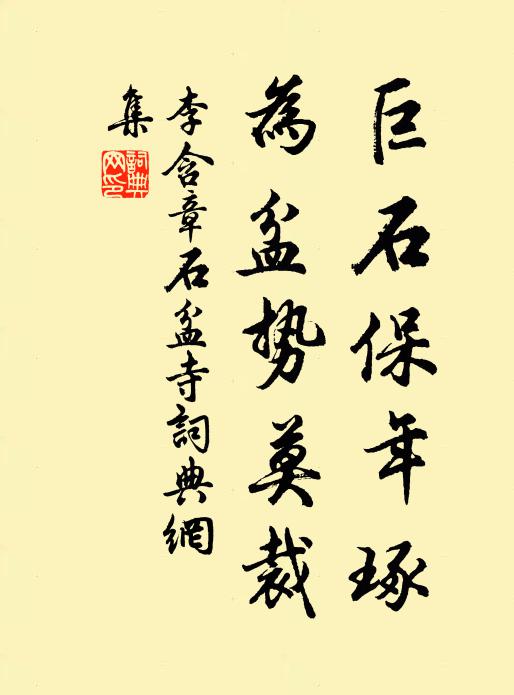 巨石保年琢
為盆勢莫裁
李含章石盆寺詞典網
集
詞典網印